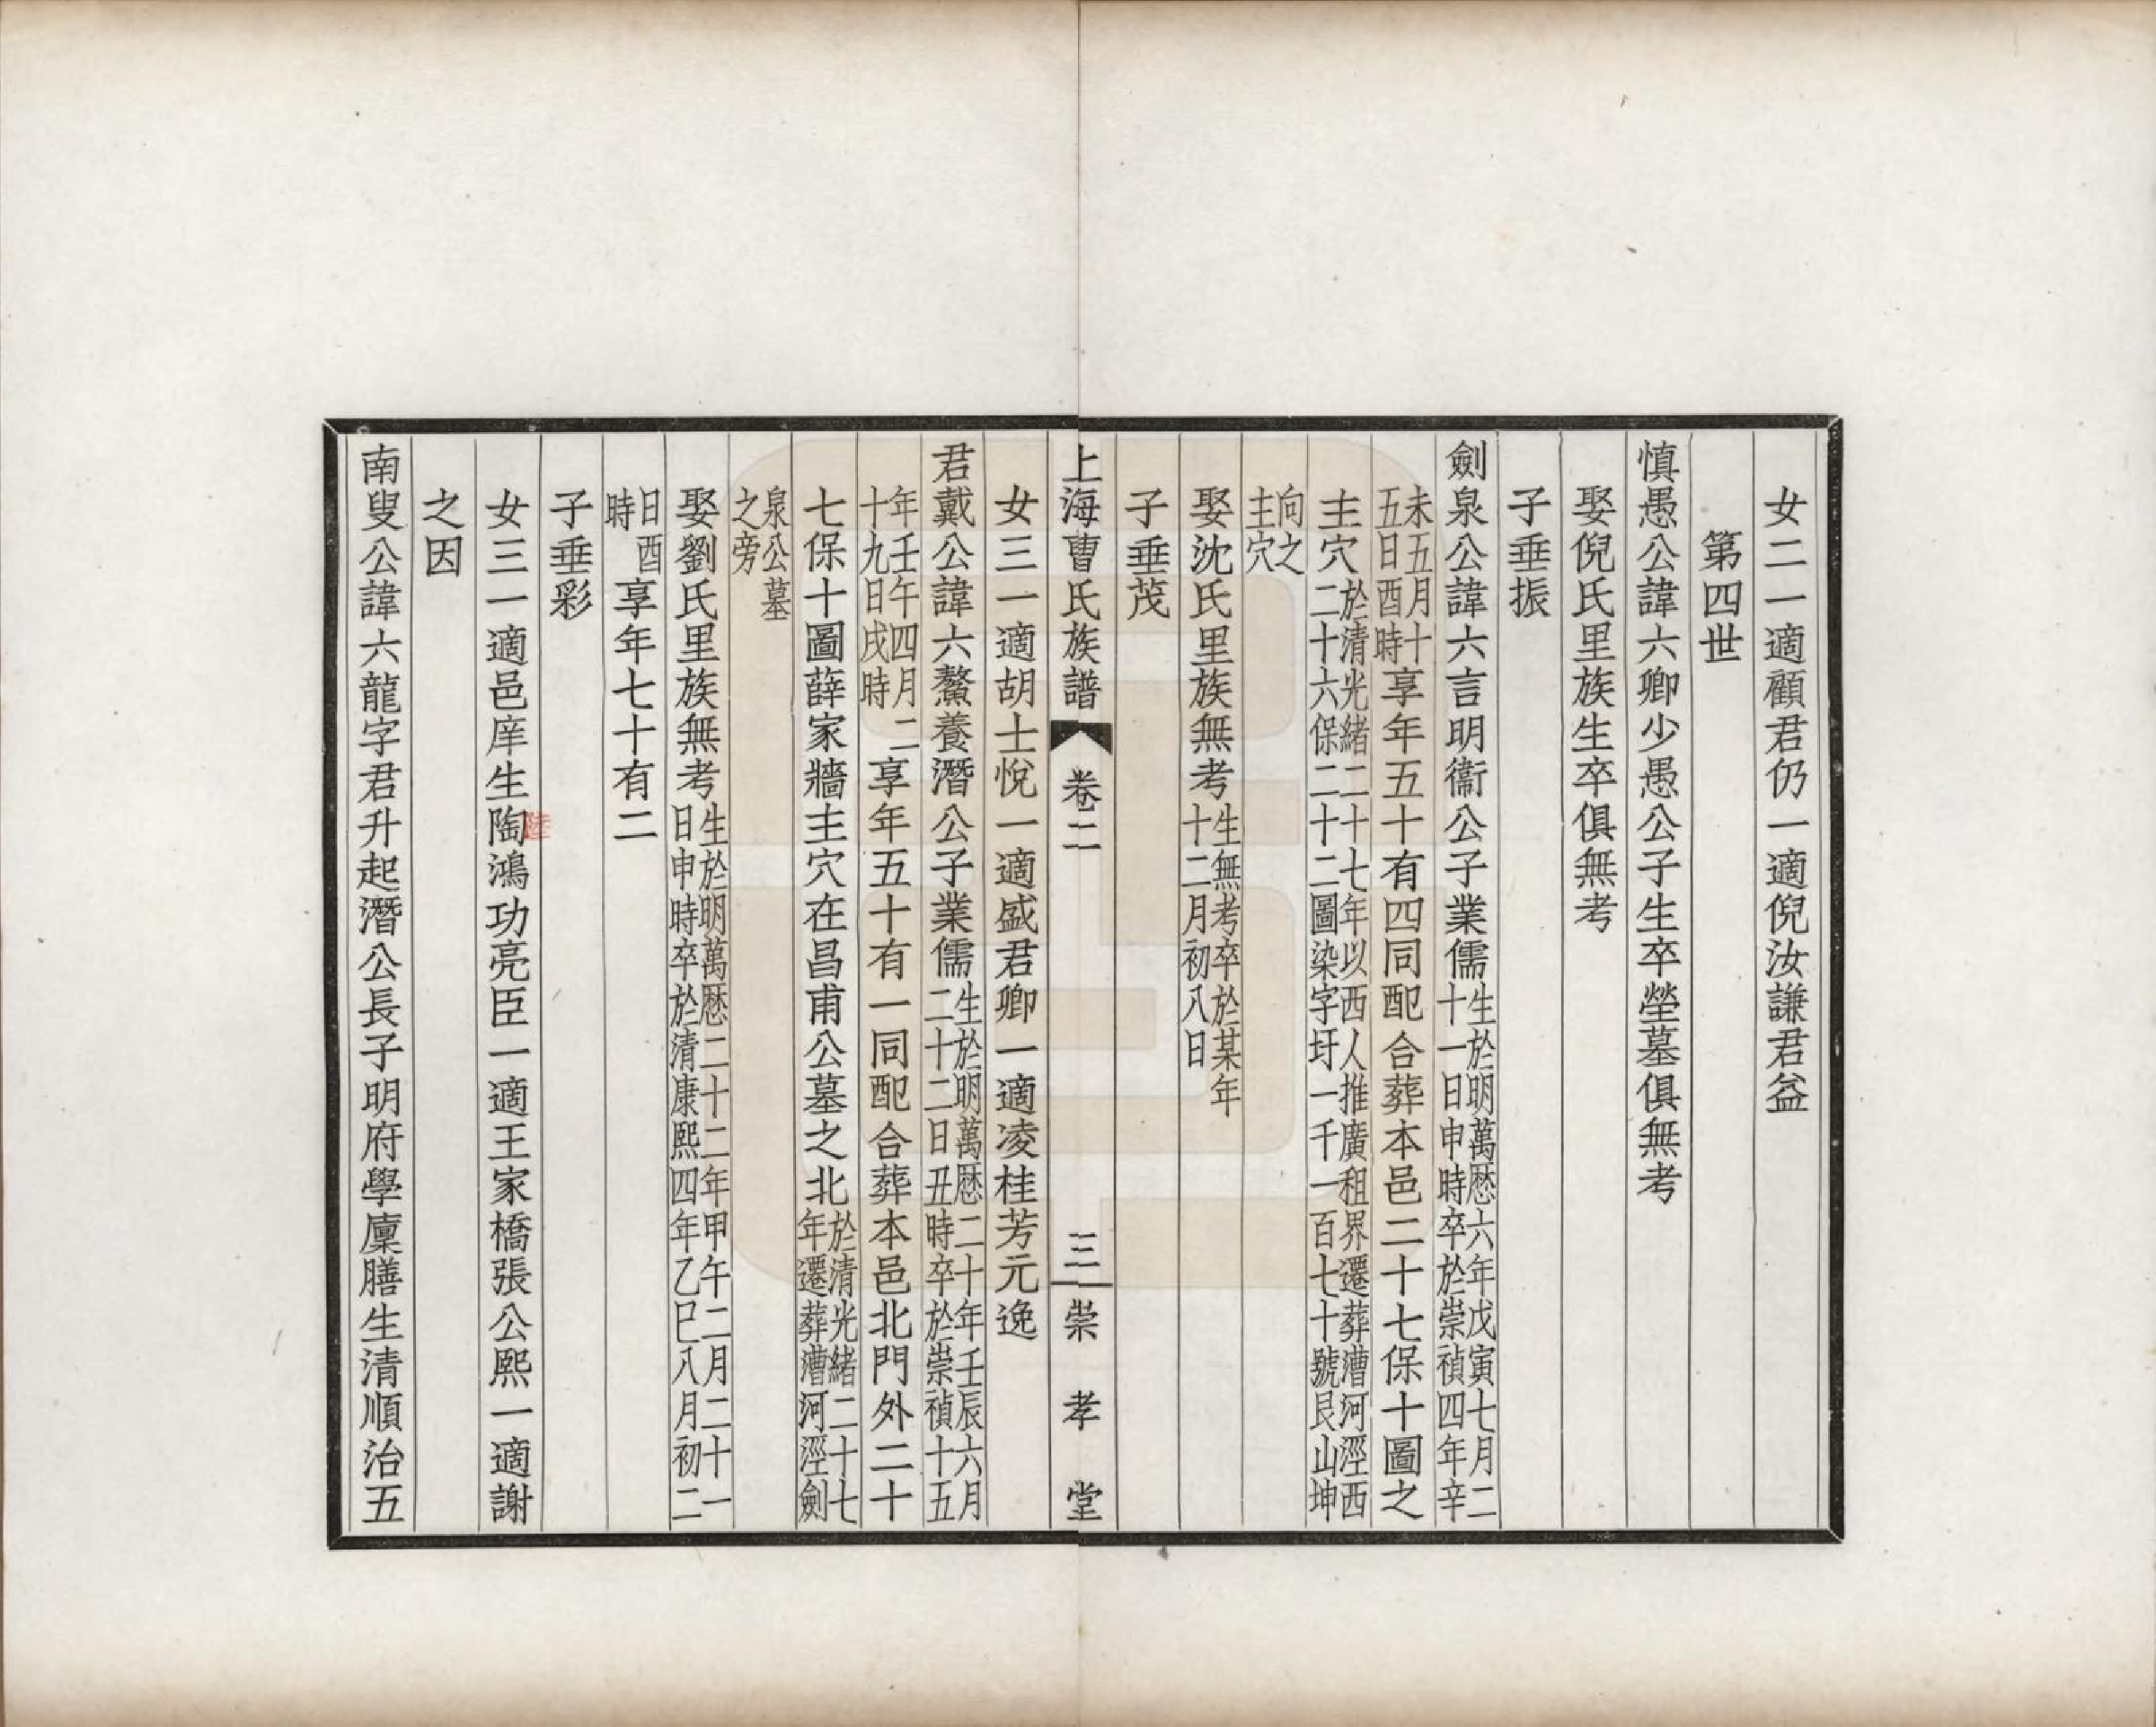 女二一適顧君仍一適倪汝謙君益
第四世
慎愚公諱六卿少愚公子生卒塋墓俱無考
娶倪氏里族生卒俱無考
子垂振
劍泉公諱六言明衞公子業儒生於明萬厯六年戊寅七月二十一日申時卒於崇禎四年辛
未五月十五日酉時享年五十有四同配合葬本邑二十七保十圖之
主穴於清光緒二十七年以西人推廣租界遷葬漕河涇西二十六保二十二圖染字圩一千一百七十號艮山坤
向之主穴
娶沈氏里族無考生無考卒於某年十二月初八日
子垂茂
上海曹氏族譜 卷二 三 崇孝堂
女三一適胡士悅一適盛君卿一適凌桂芳元逸
君戴公諱六鰲養潛公子業儒生於明萬厯二十年壬辰六月二十二日丑時卒於崇禎十五
年壬午四月二十九日戌時享年五十有一同配合葬本邑北門外二十
七保十圖薛家牆主穴在昌甫公墓之北於清光緒二十七年遷葬漕河涇劍
泉公墓之旁
娶劉氏里族無考生於明萬厯二十二年甲午二月二十一日申時卒於清康熙四年乙巳八月初二
日酉時享年七十有二
子垂彩
女三一適邑庠生陶鴻功亮臣一適王家橋張公熙一適謝
陸
之因
南叟公諱六龍字君升起潛公長子明府學廩膳生清順治五